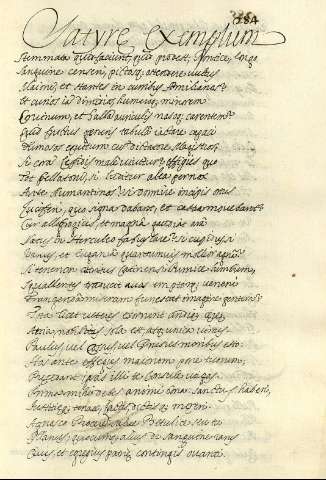 Satyre Exemplum
Stemmata quid faciunt, quid prodest, Pontice, longo
Sanguine censeri, pictosq; ostendere vultus
Maiorū, et stantes in curribus Æmilianos?
Et curios iā dimidios, humeroq; minorem
Corvinum, et Galbā auriculis nasoq; carentem?
Quis fructus generis tabulā iactare capaci
Fumosos equitum cum dictatore Magistros,
Si corā Lepidis male vivitur? effigies quo
Tot bellatorū, si luditur alea pernox
Ante Numantinos? si dormire incipis ortu
Luciferi, quo signa dabant, et castra movebant?
Cur allobrogicis, et magna gaudeat arā
Natus in Herculeo fabius lare? si cupidus, si
Vanus, et Euganeā quantumvis mollior agnā?
Si tenerum attritus Catinensi pumice lumbum,
Squallentes traducit avos emptorq; veneni
Frangenda miseram funestat imagine gentem?
Tota licet veteres exornent undiq; cere
Atria, nobilitas sola est, atq; unica virtus.
Paulus, vel Cossus, vel Drusus moribus esto:
Hos ante effigies maiorum pone tuorum,
Precedant ipsas illi te Consule virgas.
Prima mihi debes animi bona. sanctus haberi,
Iustitieq; tenax, factis, dictisq; mereris?
Agnosco Procerē, salve Getulice seu tu
Silanus, quocumq; alio de sanguine rarus
Civis, et egregius patrie contingis ovanti.